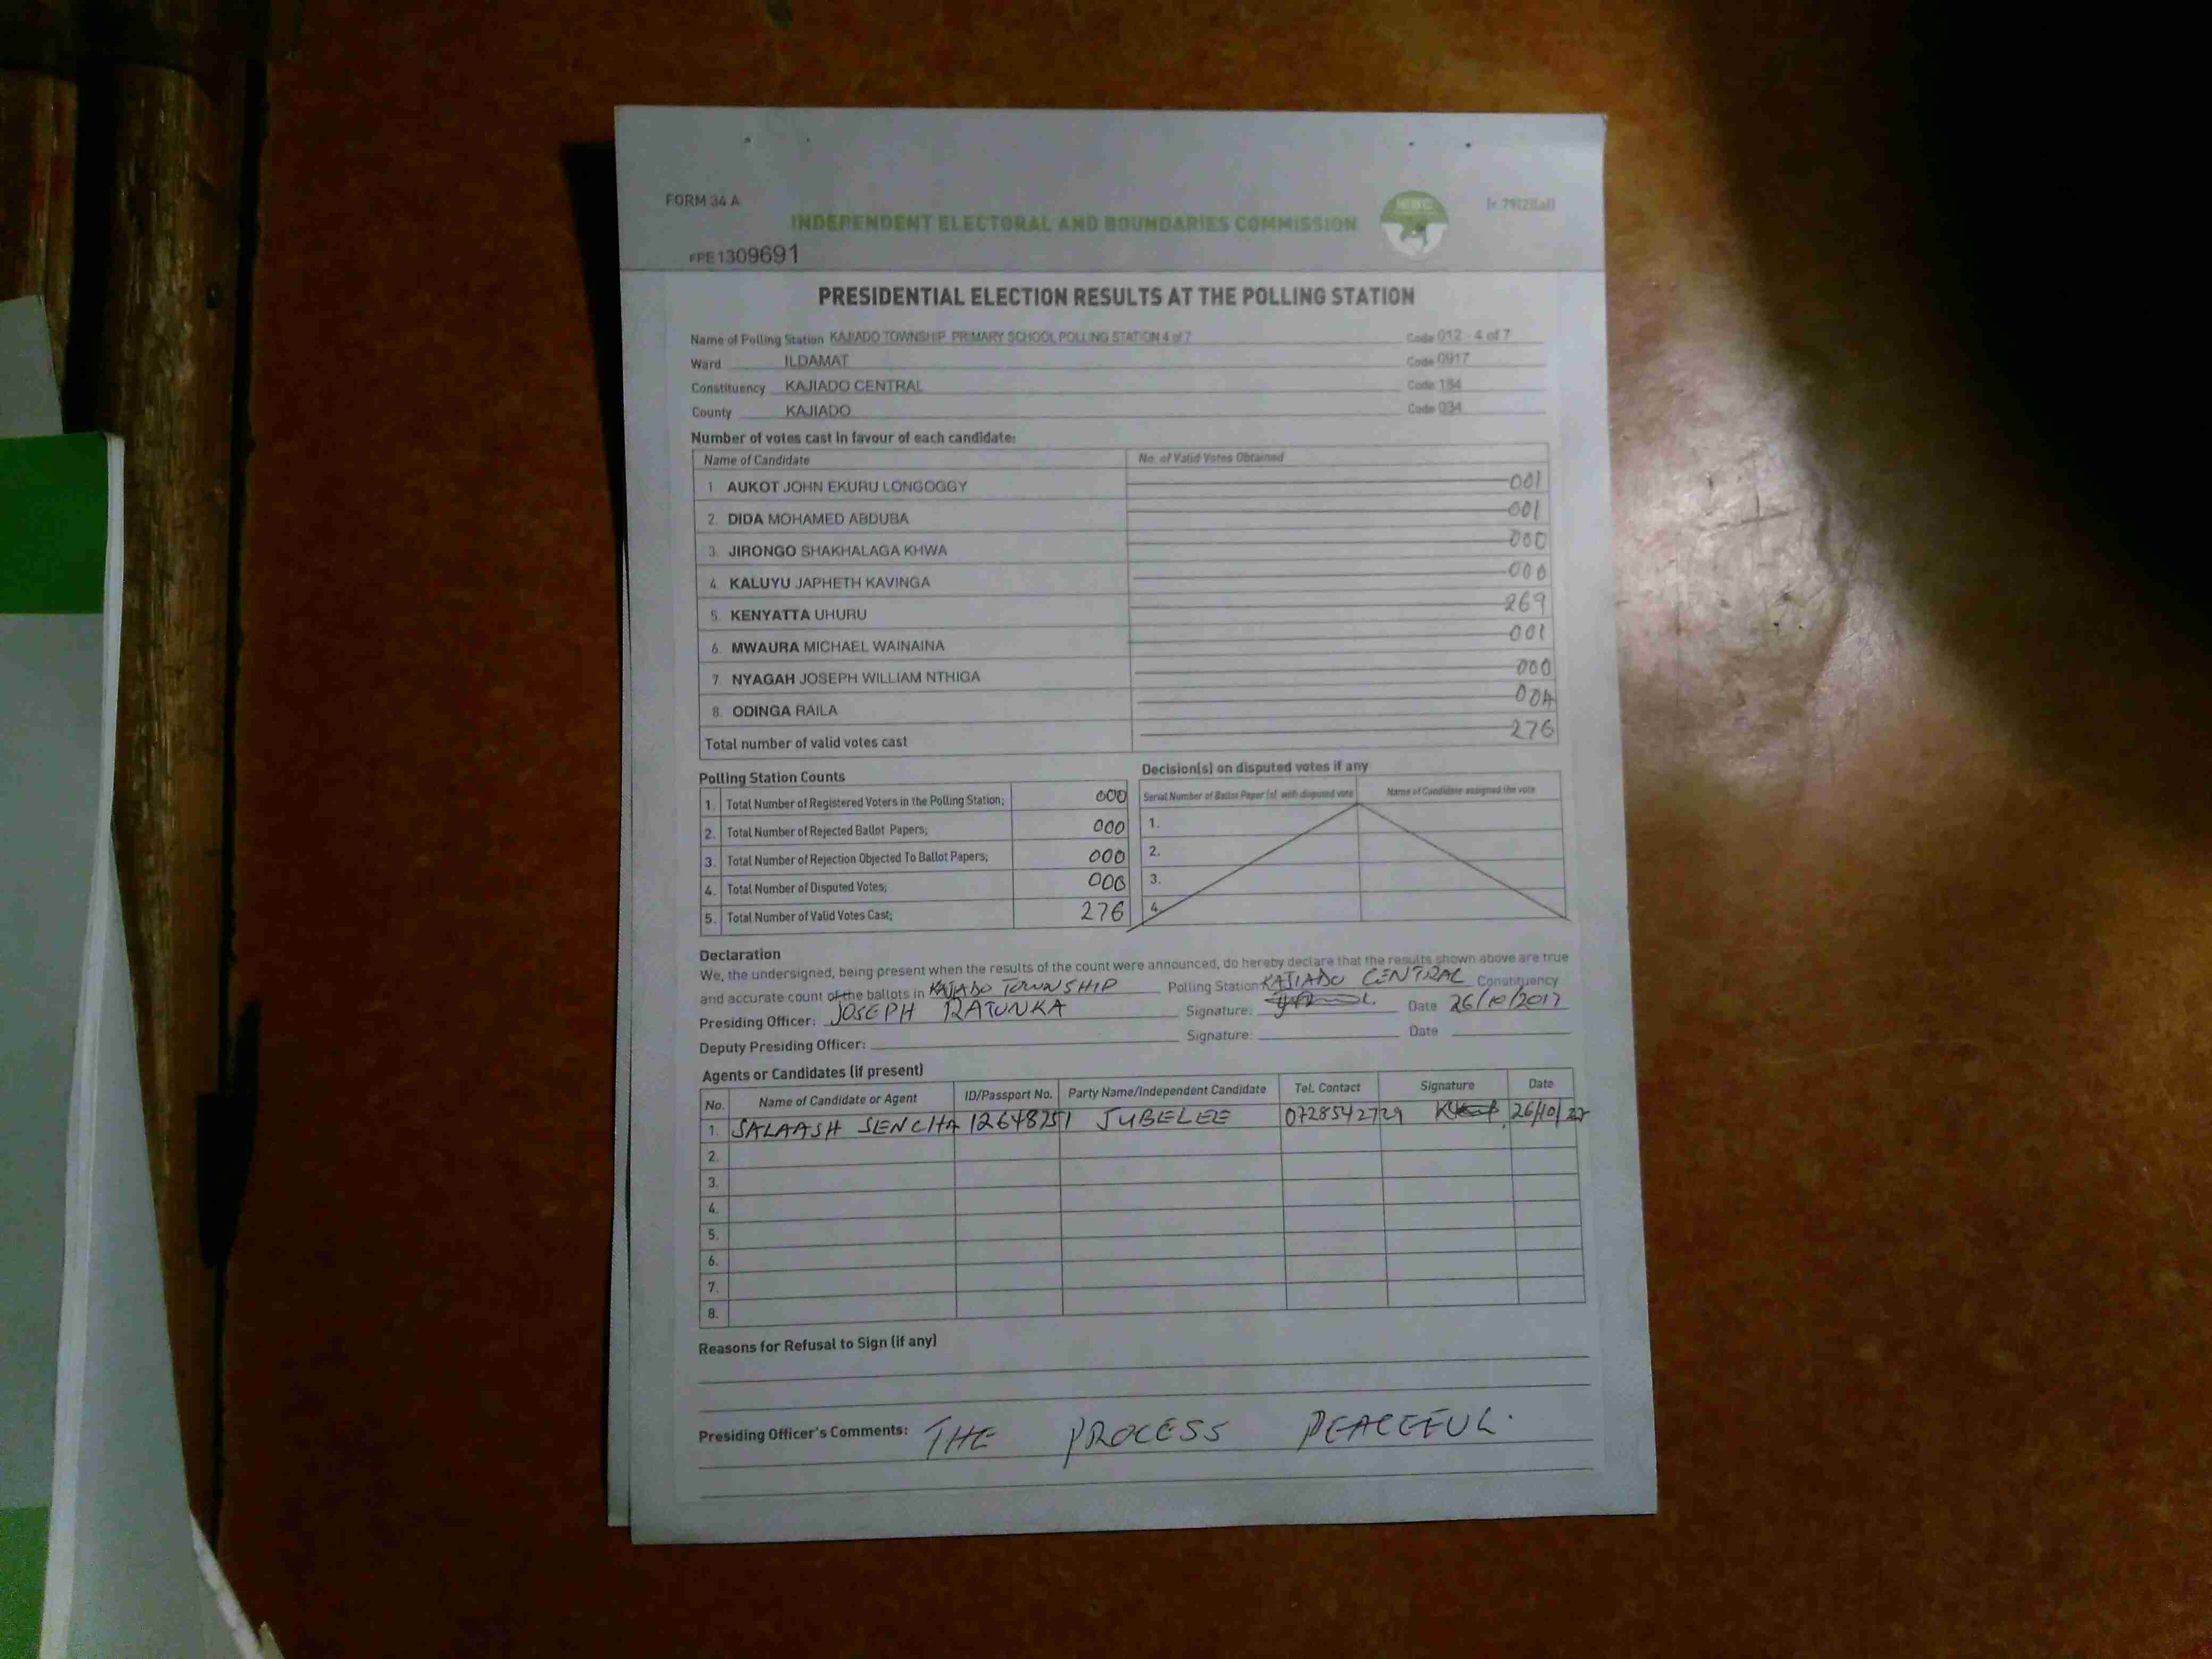 FORM 34 A
INDEPENDENT ELECTORAL AND BOUNDARIES COMMISSION
IEBC
FPE1309691
PRESIDENTIAL ELECTION RESULTS AT THE POLLING STATION
Name of Polling Station KAJIADO TOWNSHIP PRIMARY SCHOOL POLLING STATION 4 of 7 Code 012 - 4 of 7
Ward ILDAMAT Code 0917
Constituency KAJIADO CENTRAL Code 184
County KAJIADO Code 034
Number of votes cast in favour of each candidate:
Name of Candidate No. of Valid Votes Obtained
1 AUKOT JOHN EKURU LONGOGGY 001
2. DIDA MOHAMED ABDUBA 001
3. JIRONGO SHAKHALAGA KHWA 000
4. KALUYU JAPHETH KAVINGA 000
5. KENYATTA UHURU 269
6. MWAURA MICHAEL WAINAINA 001
7. NYAGAH JOSEPH WILLIAM NTHIGA 000
8. ODINGA RAILA 004
Total number of valid votes cast 276
Polling Station Counts
1. Total Number of Registered Voters in the Polling Station; 000
2. Total Number of Rejected Ballot Papers; 000
3. Total Number of Rejection Objected To Ballot Papers; 000
4. Total Number of Disputed Votes; 000
5. Total Number of Valid Votes Cast; 276
Decision(s) on disputed votes if any
Serial Number of Ballot Paper (s) with disputed vote Name of Candidate assigned the vote
1.
2.
3.
4.
Declaration
We, the undersigned, being present when the results of the count were announced, do hereby declare that the results shown above are true
and accurate count of the ballots in KAJIADO TOWNSHIP Polling Station KAJIADO CENTRAL Constituency
Presiding Officer: JOSEPH RATUNKA Signature: Date 26/10/2017
Deputy Presiding Officer: Signature: Date
Agents or Candidates (if present)
No. Name of Candidate or Agent ID/Passport No. Party Name/Independent Candidate Tel. Contact Signature Date
1. SALAASH SENCHA 12648751 JUBELEE 0728542729 26/10/
2.
3.
4.
5.
6.
7.
8.
Reasons for Refusal to Sign (if any)
Presiding Officer's Comments: THE PROCESS PEACEFUL.